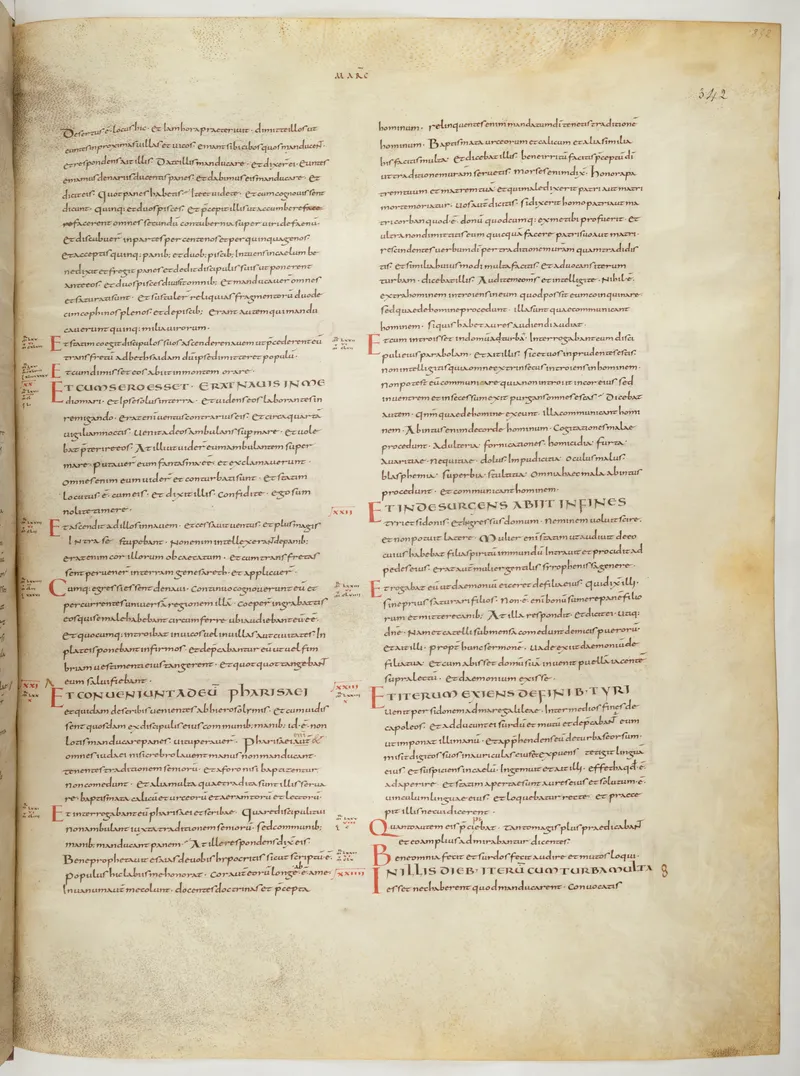 MARC
342
Desertus ē locus hic · et iam hora praeteriuit · dimitte illos ut
euntes in proximas uillas et uicos · emant sibi cibos quos manducent ·
et respondens ait illis · Date illis manducare · et dixer ei · Euntes
emamus denariis ducentis panes · et dabimus eis manducare · et
dicit eis · Quot panes habetis · Ite et uidete · et cum cognouissent
dicunt · quinq; et duos pisces · Et p̄cepit illis ut accumbere
facerent omnes secundū contubernia super uiride faenū ·
Et discubuer in partes per centenos et per quinquagenos ·
et acceptis quinq; panib; et duob; piscib; Intuens in caelum be
nedixit et fregit panes et dedit discipulis suis ut ponerent
ante eos · et duos pisces diuisit omnib; et manducauer omnes
et saturati sunt · Et sustuler reliquias fragmentorū duode
cim cophinos plenos et de piscib; erant autem qui mandu
cauerunt quinq; milia uirorum ·
Et statim coegit discipulos suos ascendere nauem ut p̄cederent eū
trans fretū ad bethsaidam dū ipse dimitteret populū ·
Et cum dimisisset eos abiit in montem orare ·
ET CUM SERO ESSET · ERAT NAUIS IN ME
dio mari · et ipse solus in terra · Et uidens eos laborantes in
remigando · erat enī uentus contrarius eis · Et circa quartā
uigiliam noctis · uenit ad eos ambulans sup mare · et uole
bat p̄terire eos · At illi ut uider eum ambulantem super
mare · putauer eum fantasma ēē · et exclamauerunt ·
omnes enim eum uider et conturbati sunt · et statim
locutus ē cum eis · et dixit illis · confidite · ego sum
nolite timere ·
Et ascendit ad illos in nauem · et cessauit uentus · et plus magis
Intra se stupebant · Non enim intellexerant de panib;
erat enim cor illorum obcaecatum · et cum transfretas
sent peruener in terram genesareth · et applicuer ·
Cumq; egressi essent de naui · Continuo cognouerunt eū et
percurrentes uniuersā regionem illā · Coeper in grabattis
eos qui se male habebant circumferre · ubi audiebant eū ēē ·
et quocumq; introibat in uicos uel in uillas aut ciuitates · In
plateis ponebant infirmos · et dep̄cabantur eū ut uel fim
briam uestimenti eius tangerent · et quotquot tangebant
eum salui fiebant ·
ET CONUENIUNT AD EŪ PHARISAEI
et quidam de scribis uenientes ab hierosolymis · et cum uidis
sent quosdam ex discipulis eius communib; manib; id ē non
lotis manducare panes · uituperauer · Pharisaei aut et
omnes iudaei nisi crebro lauent manus non manducant ·
tenentes traditionem seniorū · et a foro nisi baptizentur
non comedunt · et alia multa quae tradita sunt illis serua
re · baptismata calicū et urceorū et aeramtorū et lectorū ·
Et interrogabant eū pharisaei et scribae · Quare discipuli tui
non ambulant iuxta traditionem seniorū · sed communib;
manib; manducant panem · At ille respondens dixit eis ·
Bene prophetauit esaias de uobis hypocritis sicut scriptū ē ·
populus hic labiis me honorat · Cor aut eorū longe ē a me ·
In uanum aut me colunt · docentes doctrinas et p̄cepta
hominum · relinquentes enim mandatum dī tenetis traditionē
hominum · Baptismata urceorum et calicum et alia similia
his facitis multa · Et dicebat illis · bene irritū facitis p̄ceptū dī
ut traditionem uram seruetis · Moyses enim dix · Honora pa
trem tuum et matrem tuā · et qui maledixerit patri aut matri
morte moriatur · Uos aut dicitis · Si dixerit homo patri aut ma
tri corban quod ē · donū quodcumq; ex me tibi profuerit · Et
ultra non dimittitis eum quicquā facere patri suo aut matri ·
rescindentes uerbum dī per traditionem uram quam tradidis
tis · et similia huius modi multa facitis · Et aduocans iterum
turbam · dicebat illis · Audite me om̄s et intellegite · Nihil ē
extra hominem introiens in eum quod possit eum coinquinare ·
sed quae de homine procedunt · illa sunt quae communicant
hominem · Si quis habet aures audiendi audiat ·
Et cum introisset in domū a turba · Interrogabant eum disci
puli eius parabolam · Et ait illis · sic et uos inprudentes estis ·
non intellegitis quia omne extrinsecus introiens in hominem ·
non potest eū communicare quia non introit in cor eius sed
in uentrem et in secessum exit purgans omnes escas · Dicebat
autem · Qnm quae de homine exeunt · illa communicant homi
nem · Ab intus enim de corde hominum · Cogitationes malae
procedunt · Adulteria · fornicationes · homicidia · furta ·
Auaritiae · nequitiae · dolus · Impudicitia · oculus malus ·
blasphemia · superbia · stultitia · Omnia haec mala ab intus
procedunt · et communicant hominem ·
ET INDE SURGENS ABIIT IN FINES
tyri et sidonis · et ingressus domum · Neminem uoluit scire ·
et non potuit latere · Mulier enī statim ut audiuit de eo
cuius habebat filia spiritū inmundū Intrauit et procidit ad
pedes eius · erat aut mulier gentilis syrophenissa genere ·
Et rogabat eū ut daemoniū eiceret de filia eius · Qui dixit illi ·
sine prius saturari filios · Non ē enī bonū sumere panē filio
rum et mittere canib; At illa respondit · et dicit ei · Utiq;
dn̄e · Nam et catelli sub mensa comedunt de micis puerorū ·
Et ait illi · propt̄ hunc sermonē · Uade exiit daemoniū de
filia tua · et cum abisset domū suā inuenit puellā iacentē
supra lectū · et daemonium exisse ·
ET ITERUM EXIENS DE FINIB · TYRI
uenit per sidonem ad mare galileae · Inter medios fines de
capoleos · et adducunt ei surdū et mutū et dep̄cabant eum
ut imponat illi manū · et app̄hendens eū de turba seorsum ·
misit digitos suos in auriculas eius et expuens · tetigit linguā
eius · et suspiciens in caelū · Ingemuit et ait illi · effetha qd ē
adaperire · et statim apertae sunt aures eius · et solutum ē
uinculum linguae eius · et loquebatur recte · et praece
pit illis ne cui dicerent ·
Quanto autem eis p̄cipiebat · tanto magis plus praedicabant
et eo amplius admirabantur dicentes ·
Bene omnia fecit et surdos fecit audire et mutos loqui ·
IN ILLIS DIEB · ITERŪ CUM TURBA MULTA
esset nec haberent quod manducarent · Conuocatis